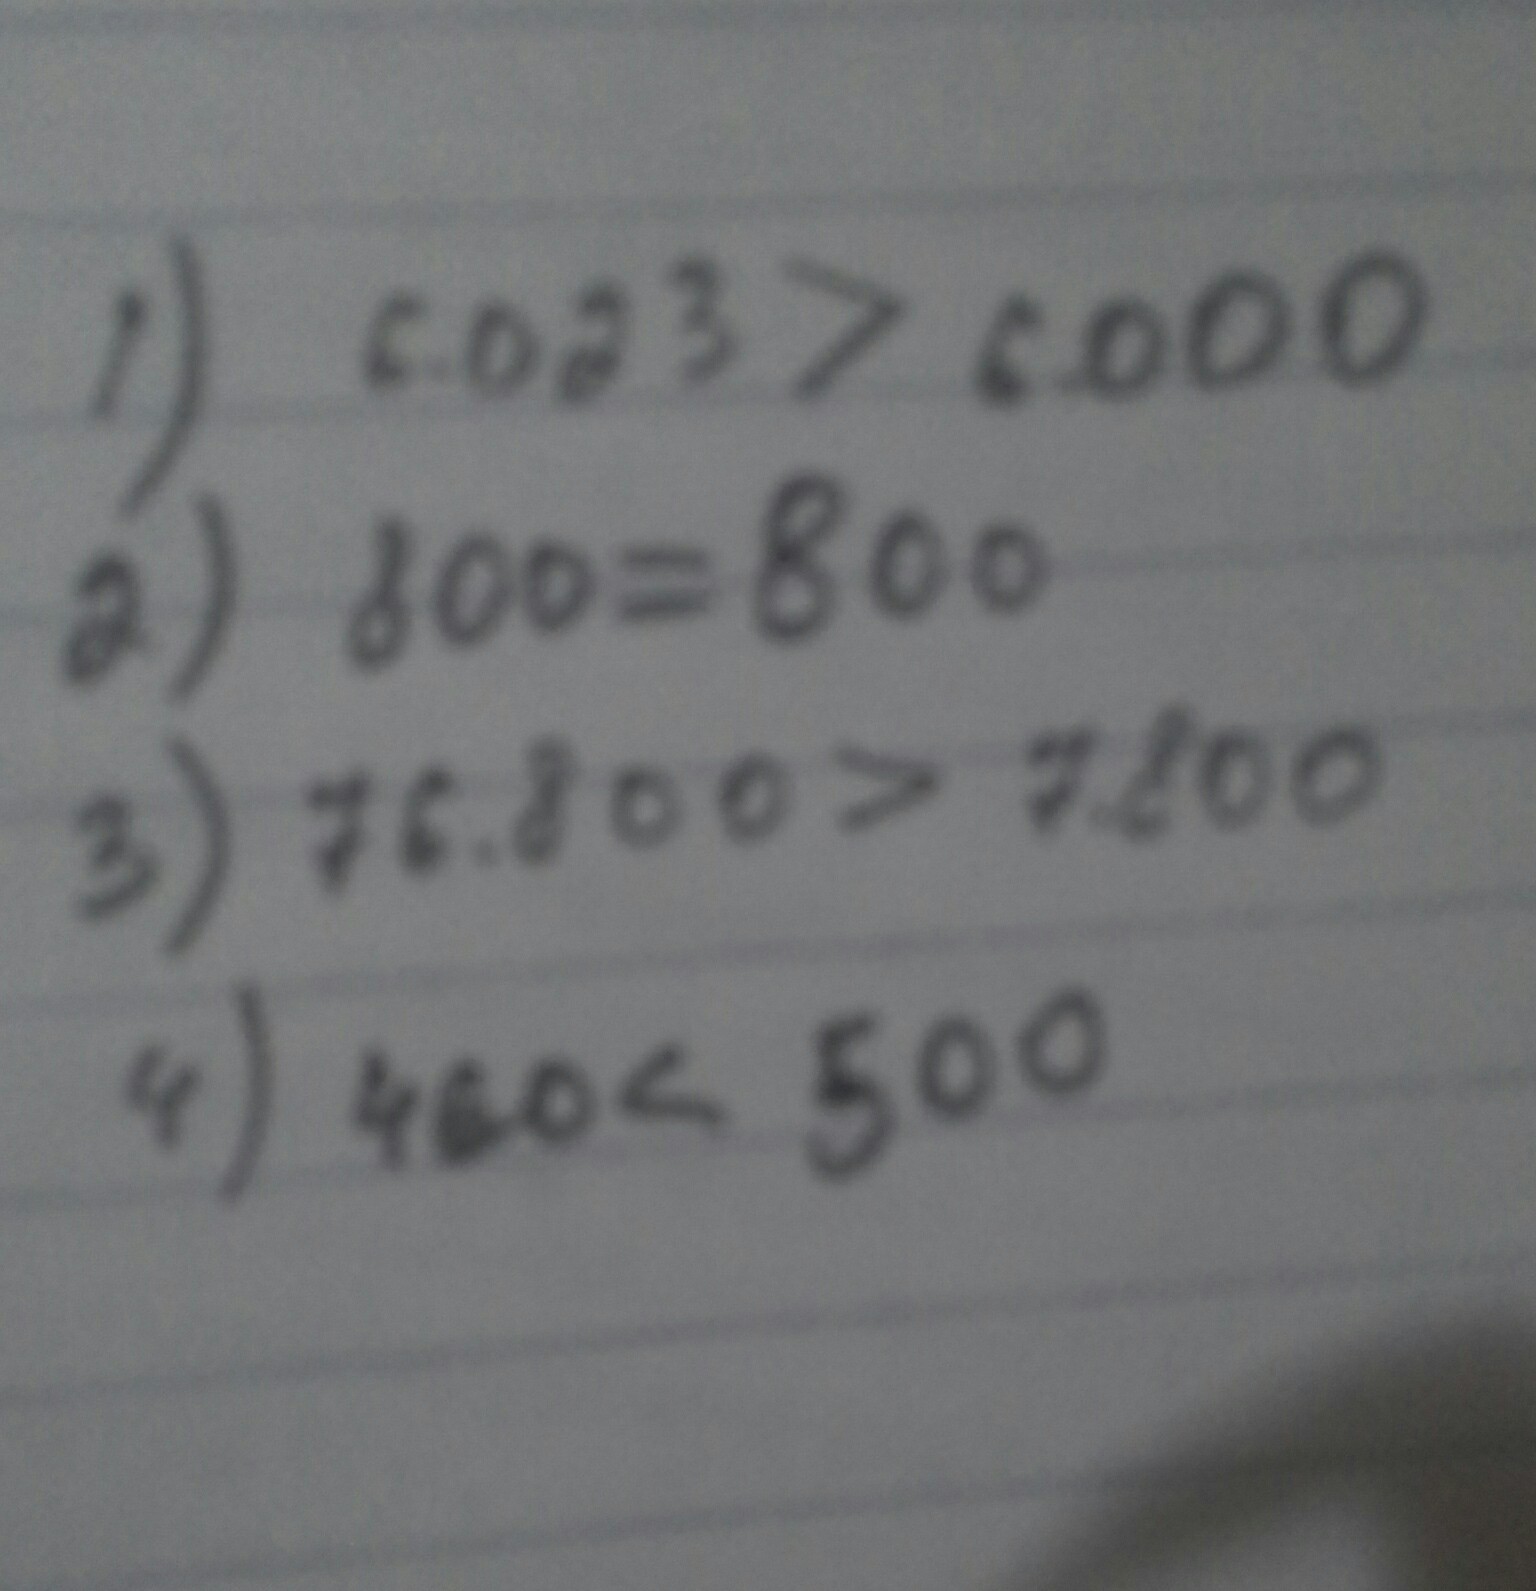 1) 6.023 > 6.000
2) 800 = 800
3) 76.800 > 7.800
4) 460 < 500